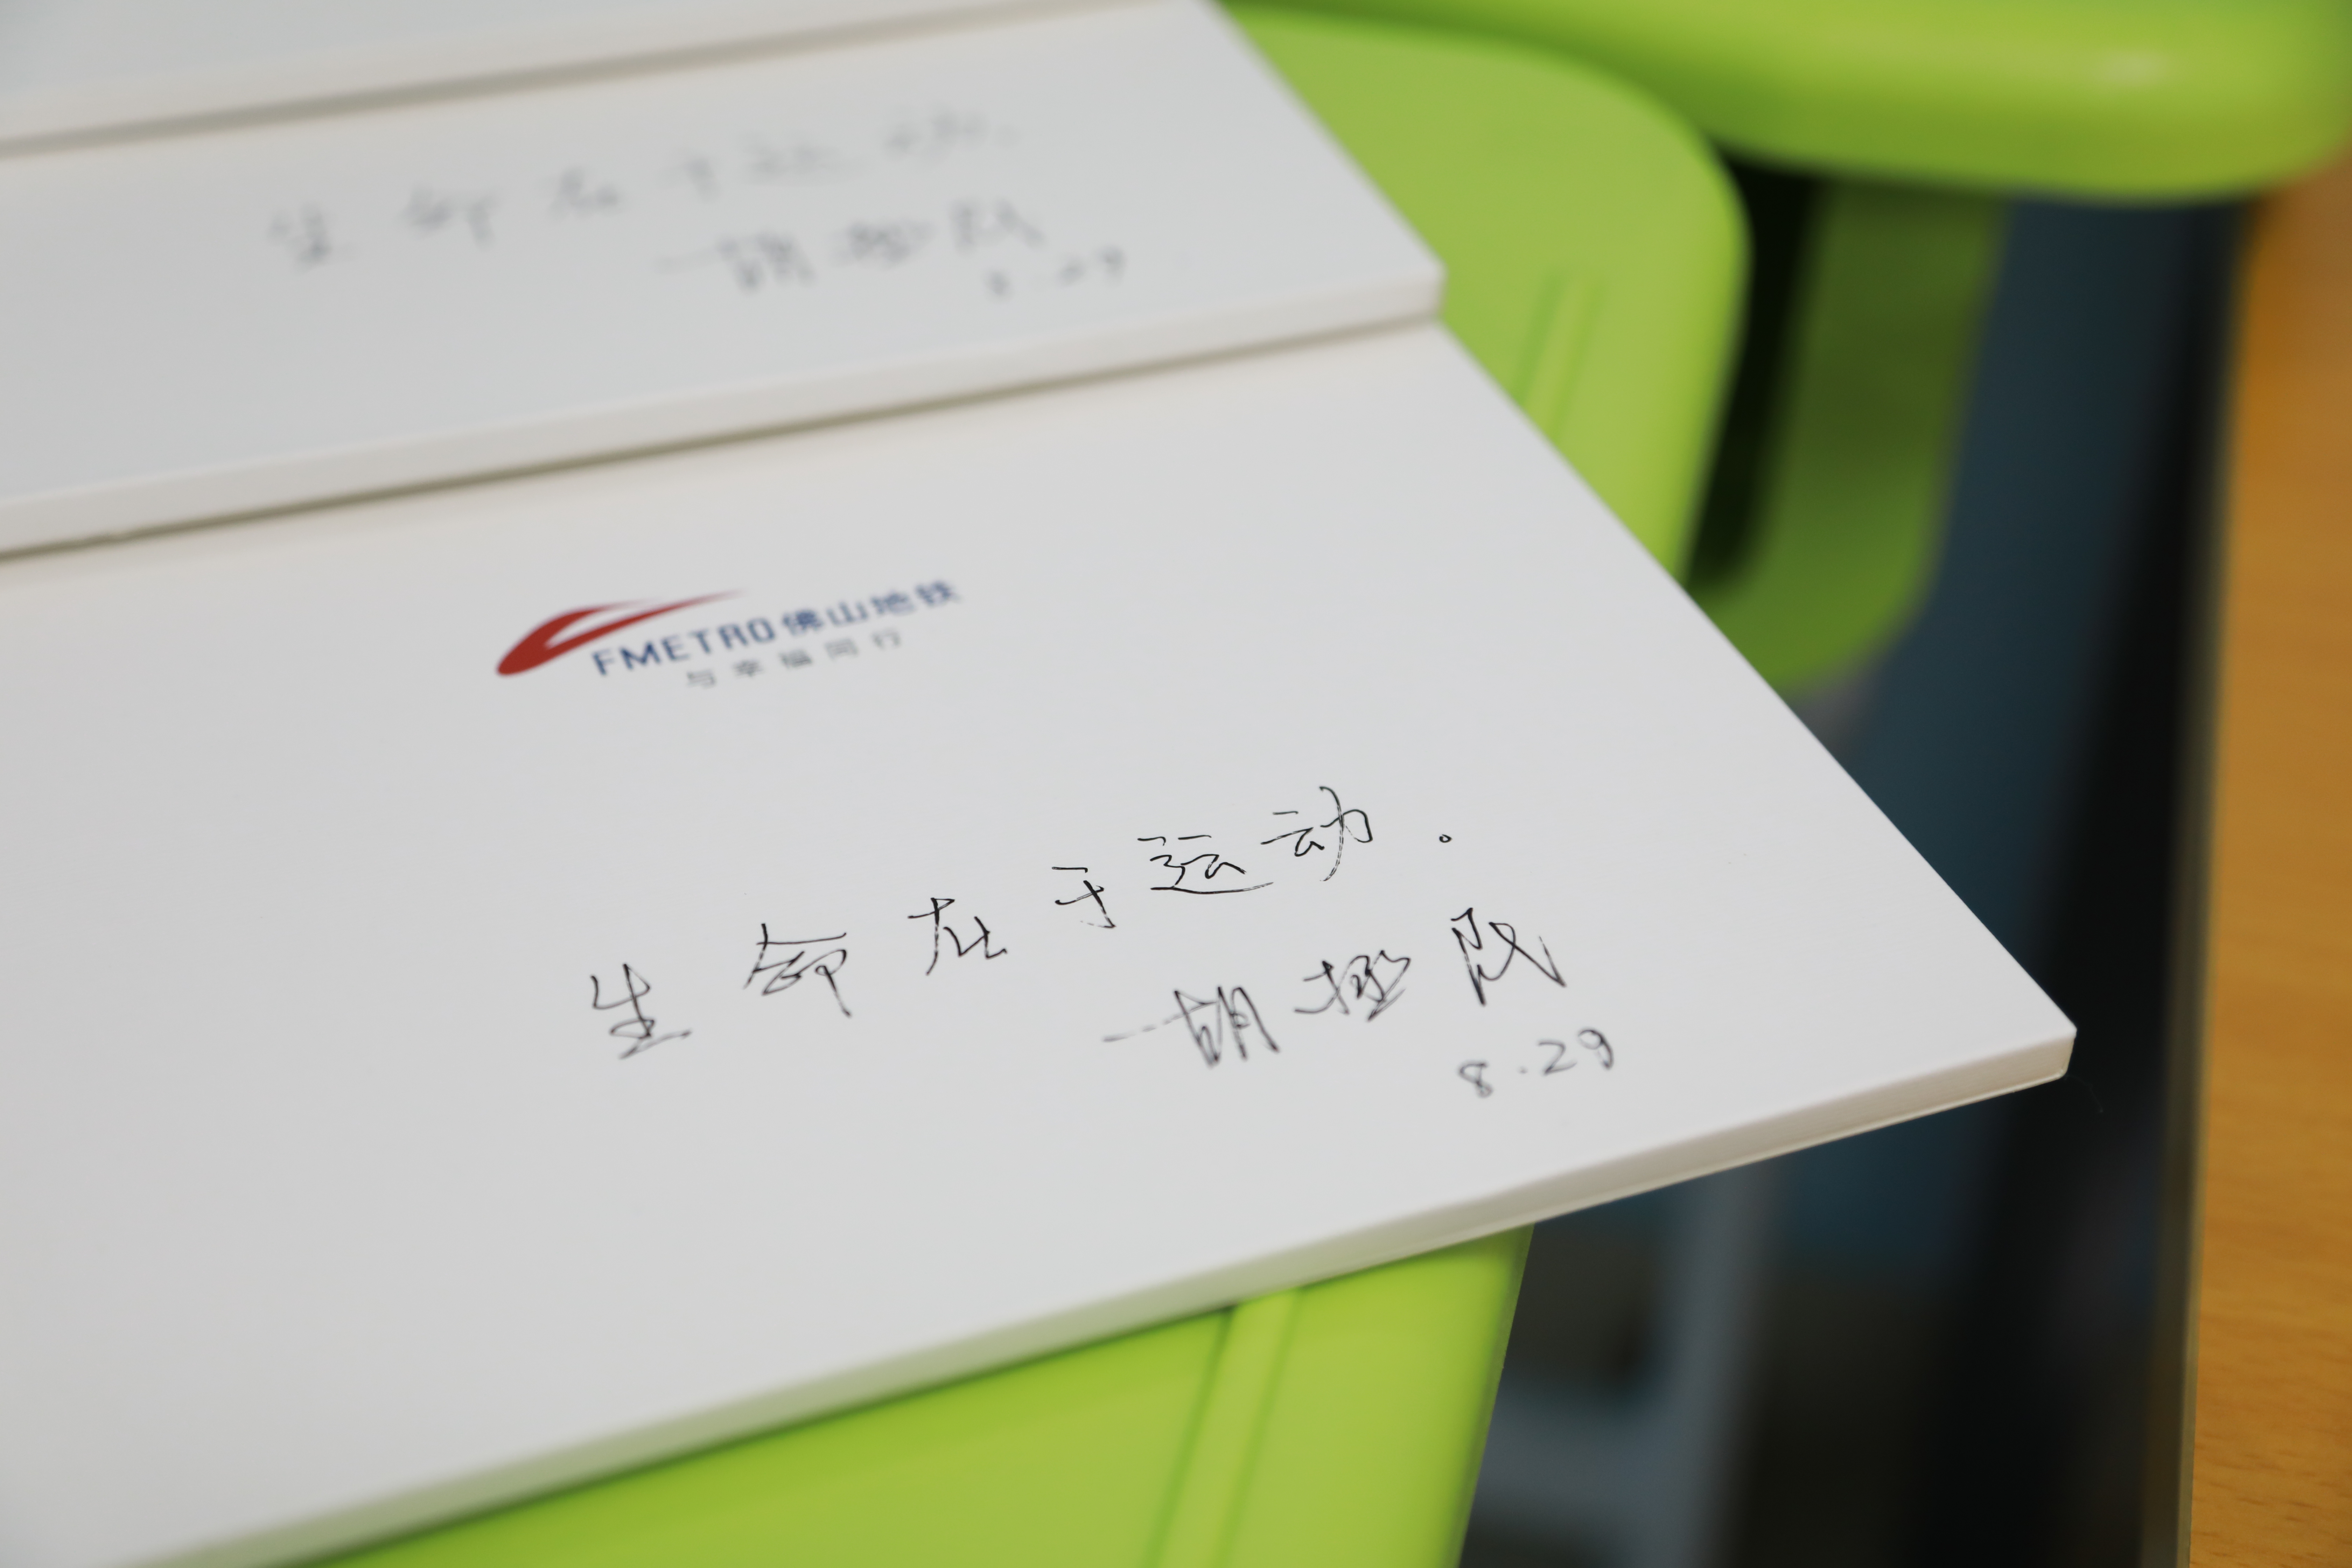 生命在于运动.
一胡拯队
8.29
FMETRO佛山地铁
与幸福同行
生命在于运动。
一胡拯队
8.29